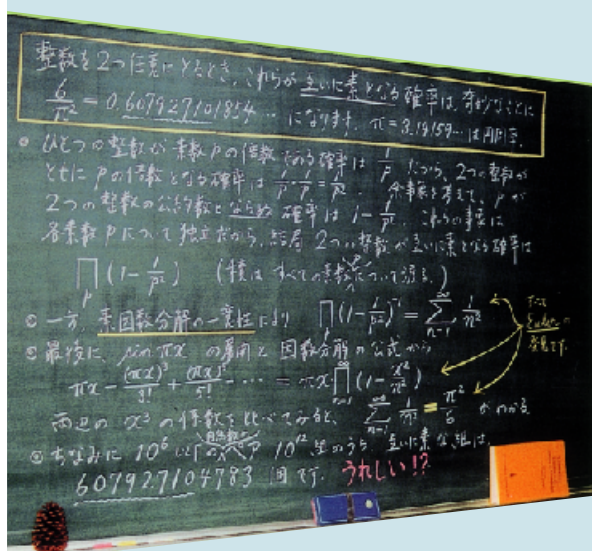 整数を2つ任意にとるとき、これらが互いに素となる確率は、奇妙なことに
6/π² = 0.607927101854… になります. π=3.14159… は円周率.
ひとつの整数が素数pの倍数である確率は 1/p だから、2つの整数が
ともにpの倍数となる確率は 1/p・1/p=1/p². 余事象を考えて、pが
2つの整数の公約数とならぬ確率は 1-1/p². これらの事象は
各素数pについて独立だから、結局 2つの整数が互いに素となる確率は
∏_p (1-1/p²) (積はすべての素数について渡る.)
一方、素因数分解の一意性により ∏_p (1-1/p²)⁻¹ = ∑_{n=1}^∞ 1/n²
すべて
Eulerの
発見です.
最後に、sin πx の展開と因数分解の公式から
πx - (πx)³/3! + (πx)⁵/5! - … = πx ∏_{n=1}^∞ (1-x²/n²)
両辺の x³ の係数を比べてみると、 ∑_{n=1}^∞ 1/n² = π²/6 がわかる
ちなみに 10⁶ 以下の 10¹² 組のうち 互いに素な組は、
607927104783 個です. うれしい!?